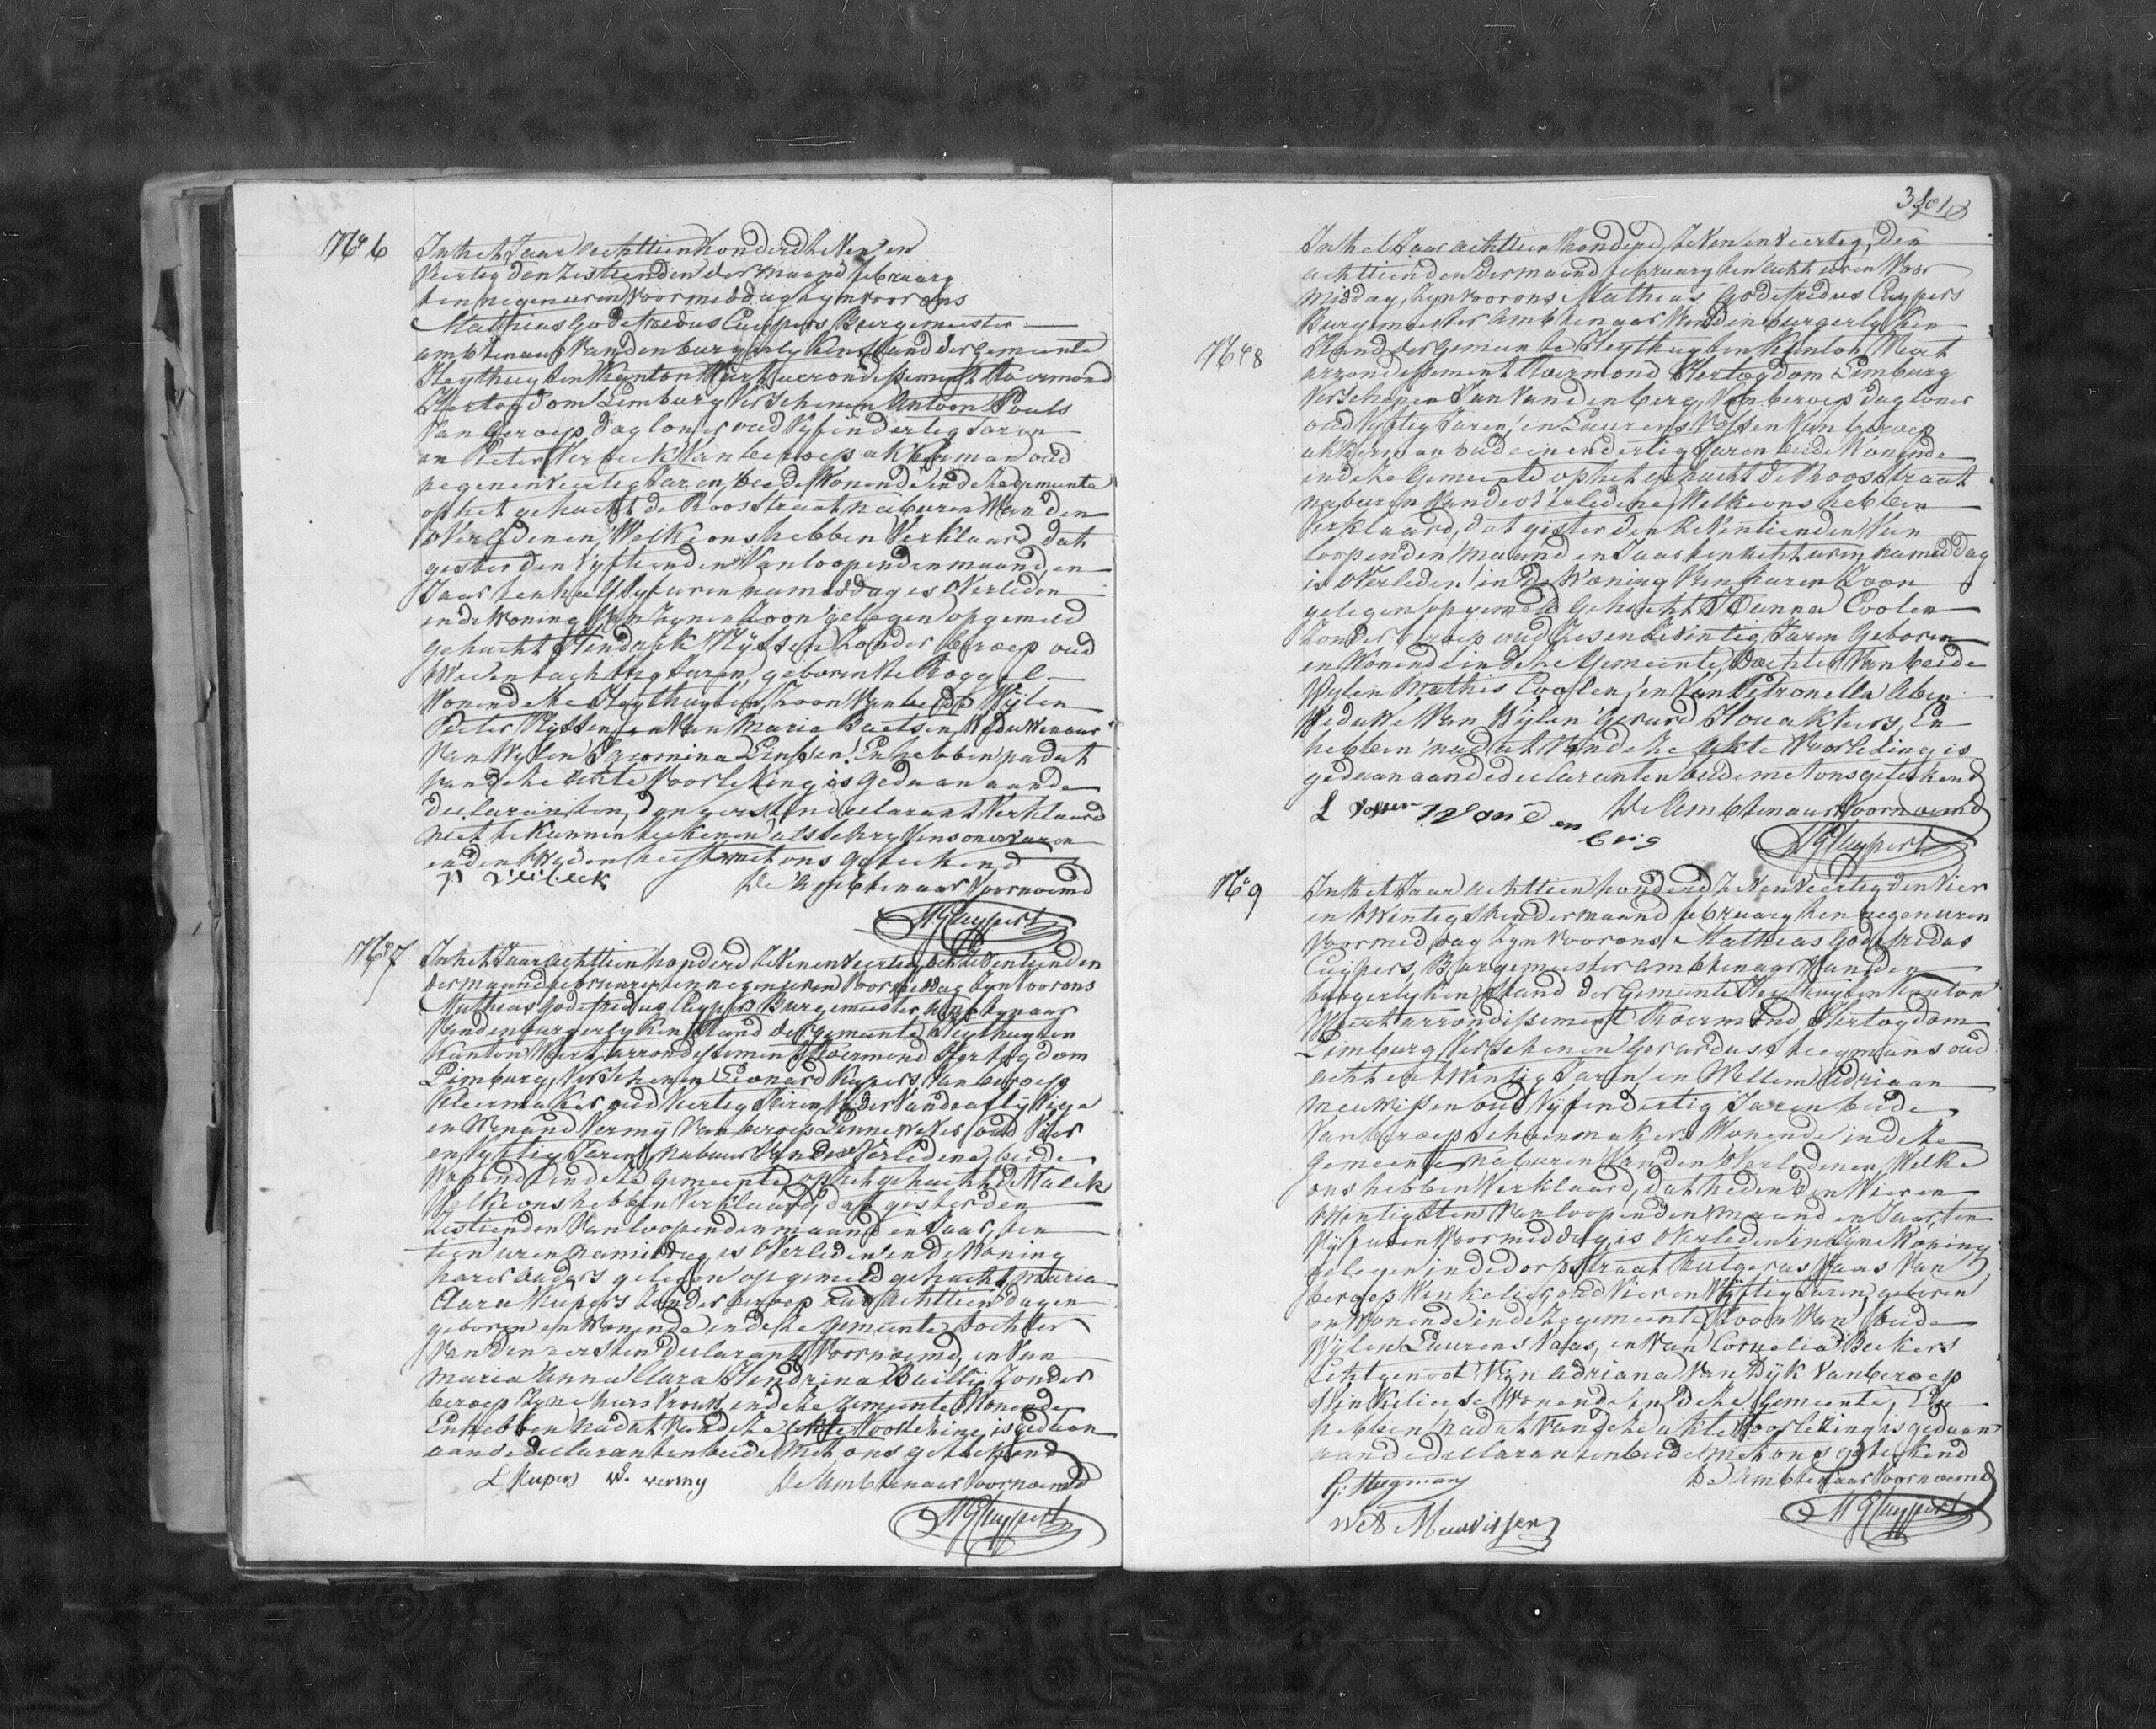 No 6
In het Jaar achttien honderd zeven en
veertig den zestienden der maand february
ten negen uren voormiddag zyn voor ons
Mathias Godefridus Cuypers Burgemeester
ambtenaar van den burgerlyken stand der gemeente
Heythuyzen Kanton Weert arrondissement Roermond
Hertogdom Limburg verschenen Antoon Pouls
van beroep dagloner oud vyf en dertig Jaren
en Peter Verbeek van beroep akkerman oud
negen en veertig Jaren, beide wonende in deze gemeente
op het gehucht de Roosstraat naburen van den
overledenen, Welke ons hebben Verklaard, dat
gister den vyftienden van loopenden maand en
Jaar ten half vyf uren namiddag is overleden
in de woning van zynen Zoon gelegen op gemeld
gehucht Hendrik Nyssen zonder beroep oud
twee en tachtig Jaren, geboren te Roggel
wonende te Heythuyzen, Zoon van beide wylen
Peter Nyssen, en van Maria Baetsen, Weduwenaar
van Wylen Jacomina Linssen. En hebben na dat
van deze akte voorlezing is gedaan aan de
declaranten, den eersten declarant verklaard
niet te kunnen tekenen als schryvens onervaren
en den tweeden heeft met ons geteekend
P Verbeek De Ambtenaar voornoemd
MGCuypers
No 7
In het Jaar achttien honderd zeven en veertig, den zeventienden
der maand february ten negen uren voormiddag zyn voor ons
Mathias Godefridus Cuypers Burgemeester, ambtenaar
van den burgerlyken stand der gemeente Heythuyzen
Kanton Weert, arrondissement Roermond Hertogdom
Limburg, verschenen Leonard Kupers, van beroep
Kleermaker oud veertig Jaren, vader van de aflyvige
en Wenand Vermy van beroep Linnewever oud vier
en vyftig Jaren, nabuur van de overledene, beide
wonende in deze gemeente op het gehucht de Maleck
Welke ons hebben verklaard, dat gister den
zestienden van loopenden maand en Jaar, ten
tien uren namiddag is overleden in de woning
harer ouders gelegen op gemeld gehucht, Maria
Clara Kupers zonder beroep oud achttien dagen
geboren en wonende in deze gemeente dochter
van den eersten declarant voornoemd, en van
Maria Anna Clara Hendrina Bailly, zonder
beroep zyne huisvrouw, in deze gemeente wonende
En hebben na dat van deze akte voorlezing is gedaan
aan de declaranten beide met ons geteekend
L Kupers W. vermy De Ambtenaar voornoemd
MGCuypers
No 8
In het Jaar achttien honderd zeven en veertig, den
achttienden der maand february ten acht uren voor
middag, zyn voor ons Mathias Godefridus Cuypers
Burgemeester ambtenaar van den burgerlyken
stand der gemeente Heythuyzen Kanton, Weert
arrondissement Roermond Hertogdom Limburg
verschenen Jan van den berg, van beroep dagloner
oud vyftig Jaren, en Laurens Vossen van beroep
akkerman oud een en dertig Jaren beide wonende
in deze gemeente op het gehucht de Roosstraat
naburen van de overledene, Welke ons hebben
verklaard, dat gister den zeventienden van
loopenden maand en Jaar ten acht uren namiddag
is overleden in de woning van haren Zoon
gelegen op gemeld gehucht Deanna Coolen
zonder beroep oud zes en zeventig Jaren geboren
en wonende in deze gemeente, dochter van beide
Wylen Mathis Coolen, en van Petronella Aben
Weduwe van Wylen Gerard Houakkers, En
hebben na dat van deze akte voorlezing is
gedaan aan de declaranten beide met ons geteekend
L Vossen J. van den De Ambtenaar voornoemd
berg
MGCuypers
No 9
In het Jaar achttien honderd zeven veertig den vier
en twintigsten der maand february ten negen uren
voormiddag zyn voor ons Mathias Godefridus
Cuypers, Burgemeester ambtenaar van den
burgerlyken stand der Gemeente Heythuyzen Kanton
Weert arrondissement Roermond Hertogdom
Limburg, verschenen Gerardus Steegmans oud
acht en twintig Jaren, en Willem Adriaan
Meuwissen oud vyf en dertig Jaren beide
van beroep schoenmakers wonende in deze
gemeente naburen van den overledenen, Welke
ons hebben verklaard, dat heden den vier en
twintigsten van loopenden maand en Jaar, ten
vyf uren voormiddag, is overleden in zyne woning
gelegen in de dorpstraat Rutgerus Vaas van
beroep Winkelier, oud vier en vyftig Jaren, geboren
en wonende in deze gemeente, Zoon van beide
Wylen Laurens Vaas, en van Cornelia Beckers
Echtgenoot van Adriana van Dyk van beroep
Winkelierse wonende in deze Gemeente, En
hebben na dat van deze akte voorlezing is gedaan
aan de declaranten beide met ons geteekend
G. Stegmans De Ambtenaar voornoemd
W A Meuwissen MGCuypers